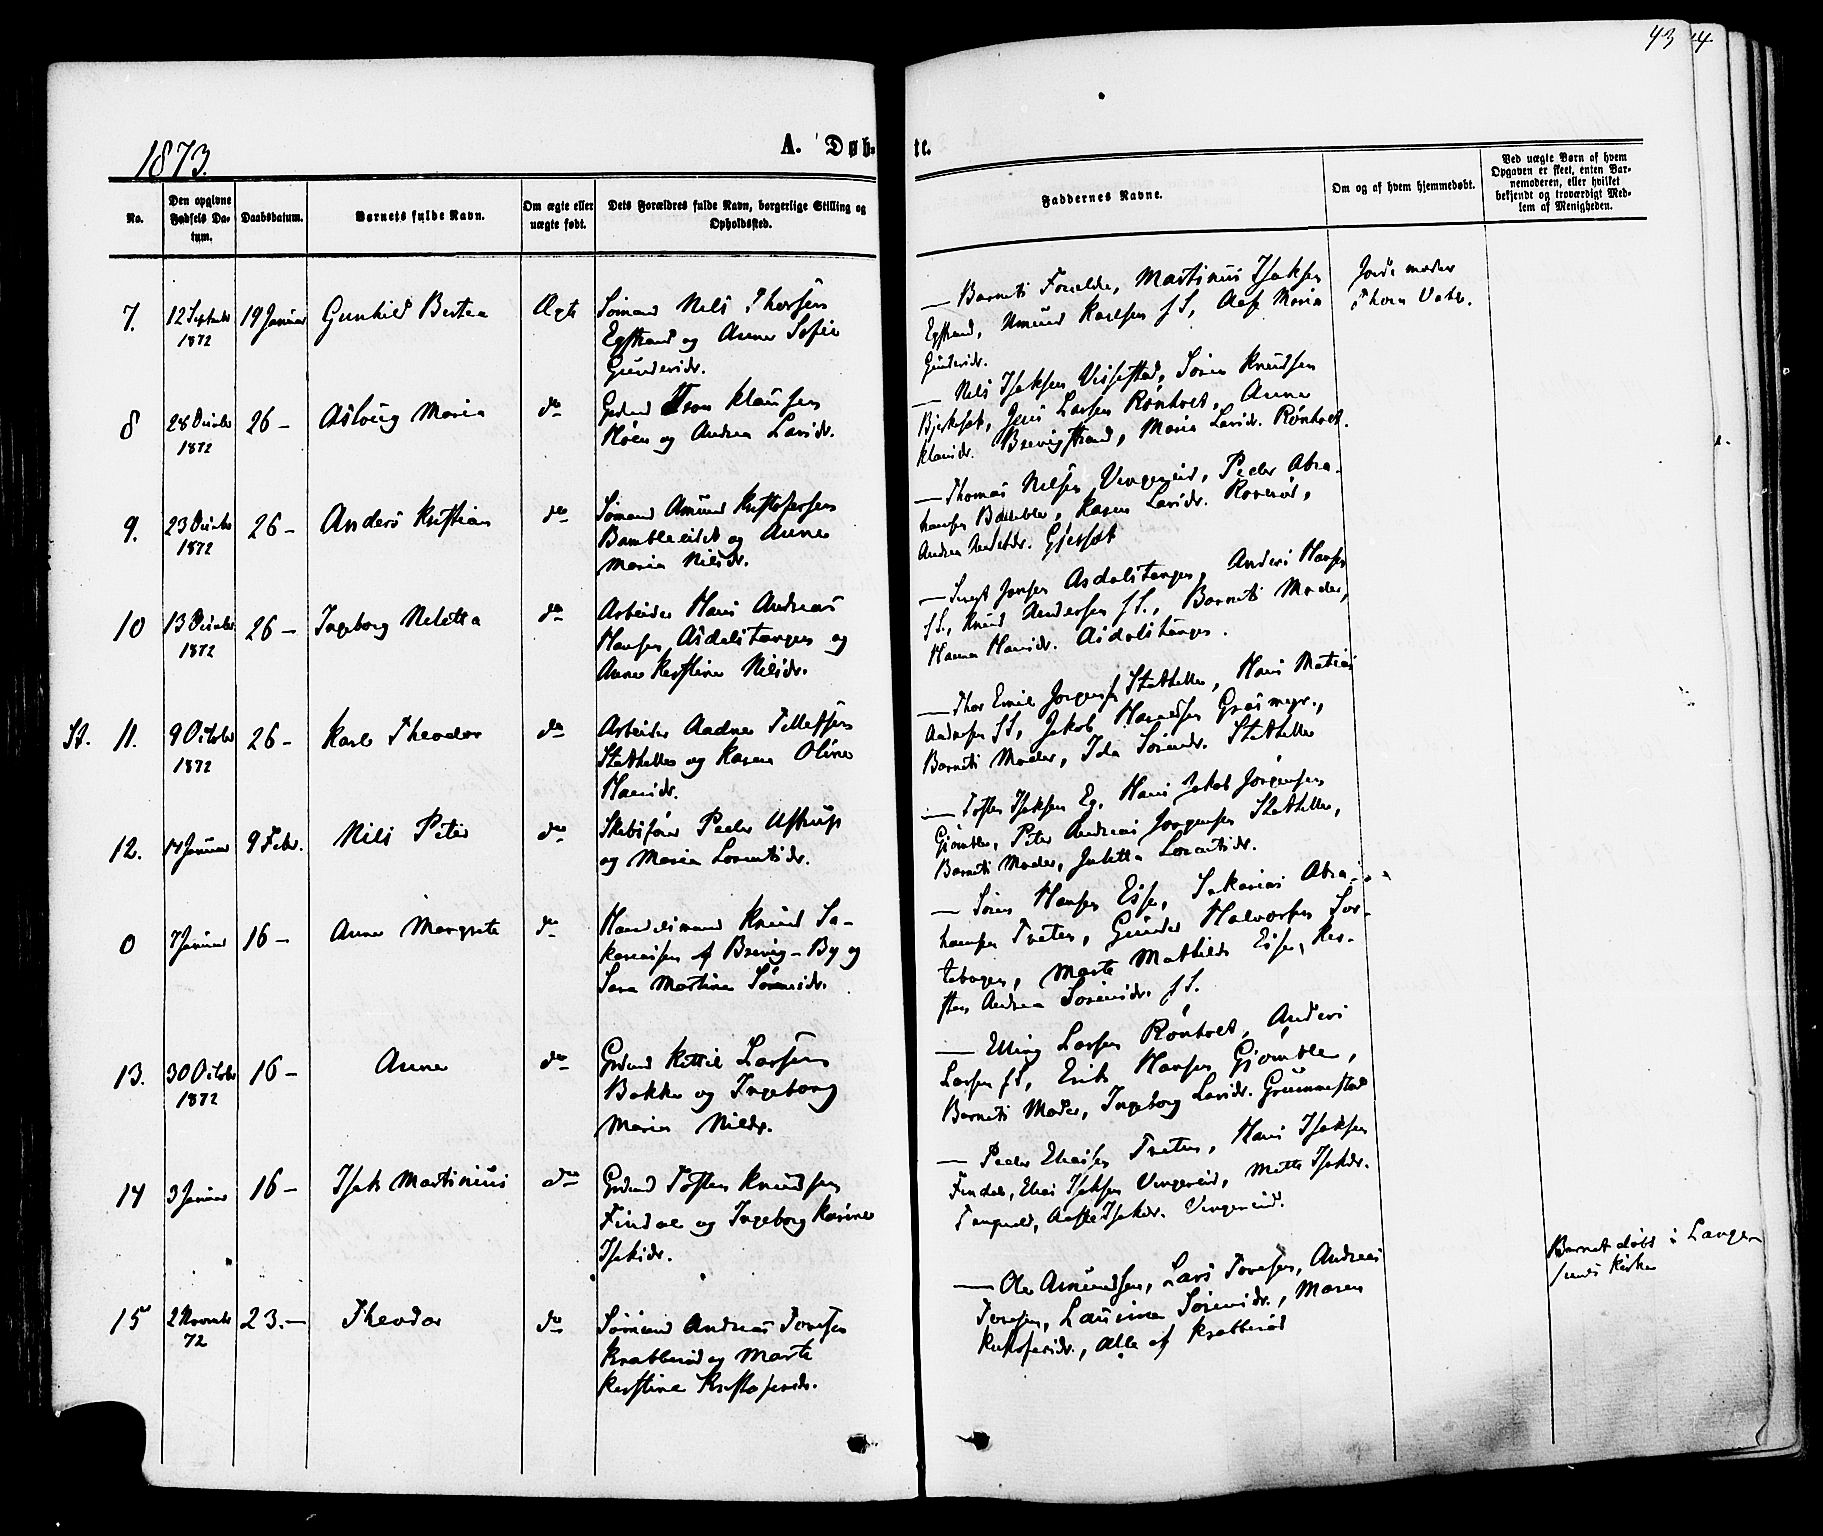 43 4
1873.
A. Døb-
te.
No.
Den opgivne Fødsels Da-
tum.
Daabsdatum.
Barnets fulde Navn.
Om ægte eller
uægte født.
Dets Forældres fulde Navn, borgerlige Stilling og
Opholdssted.
Faddernes Navne.
Om og af hvem hjemmedøbt.
Ved uægte Børn af hvem
Opgaven er skeet, enten Bar-
nemoderen, eller hvilket
bekjendt og troværdigt Med-
lem af Menigheden.
7. 12 Septembr 1872 19 Januar Gunhild Bertea Ægte
Sømand Nils Thorsen
Egstrand og Anne Sofie
Gundersdr.
— Barnets Forældre, Martinus Isaksen
Egstrand, Amund Karlsen f S., Maria
Gundersdr.
Jordemoder
8 28 Decbr 1872 26 – Aslaug Maria do
Grdmd Klausen
og Andrea Larsdr.
— Nils Isaksen Vissestad, Søren Knudsen
Bjerkset, Jens Larsen Rønholt, Anne
Klausdr. Brevigstrand, Maria Larsdr. Rønholt.
9. 23 Decbr 1872 26 – Anders Kristian do
Sømand Amund Kristofersen
Bambleeidet og Anne
Maria Nilsdr.
— Thomas Nilsen Vingereid, Peder Abra-
hamsen Bamble, Karen Larsdr.
Andrea
10 13 Decbr 1872 26 – Ingeborg Neletta do
Arbeider Hans Andreas
Hansen Asdalstangen og
Anne Kristine Nilsdr.
— Jensen Asdalstangen, Anders Hansen
f S., Knud Andersen f S., Barnets Moder,
Hanna Hansdr. Asdalstangen.
St. 11. 9 October 1872 26 – Karl Theodor do
Arbeider Aadne Tellefsen
Stathelle og Karen Oline
Hansdr.
— Thor Emil Jørgensen Stathelle, Hans Matias
Andersen f S, Jakob Hansen Grasmyr,
Barnets Moder, Ida Sørensdr. Stathelle
12. 14 Januar 9 Febr. Nils Peter do
Skibsfører Peder Ustrup
og Maria Lorentsdr.
— Tosten Isaksen Eg, Hans Jakob Jørgensen
Gjømle, Peter Andreas Jørgensen Stathelle,
Barnets Moder, Juletta Lorentsdr.
0 7 Januar 16 – Anne Margrete do
Handelsmand Knud Sa-
kariasen af Brevig–By og
Sara Martine Sørensdr.
— Søren Hansen Eise, Sakarias Abra-
hamsen Tveten, Gunder Halvorsen Sor-
tebogen, Marte Mathilde Eise, Kir-
sten Andrea Sørensdr. f S.
13. 30 October 1872 16 – Anne do
Grdmd Kittil Larsen
Bakke og Ingeborg
Maria Nilsdr.
— Elling Larsen Rønholt, Anders
Larsen f S, Erik Hansen Gjømle,
Barnets Moder, Ingeborg Larsdr. Grummestad
14 3 Januar 16 – Isak Martinius do
Grdmd Tosten Knudsen
Findal og Ingeborg Karine
Isaksdr.
— Peder Eliassen Tveten, Hans Isaksen
Findal, Elias Isaksen Vingereid, Mette Isaksdr.
Isaksdr. Vingereid.
15 2 Novembr 72 23. – Theodor do
Sømand Andreas Tovesen
Krabberød og Marte
Kirstine Kristofersdr.
— Ole Amundsen, Lars Tovesen, Andreas
Tovesen, Laurine Sørensdr., Maren
Kristofersdr., alle af Krabberød
Barnet døbt i Lange-
sunds Kirke